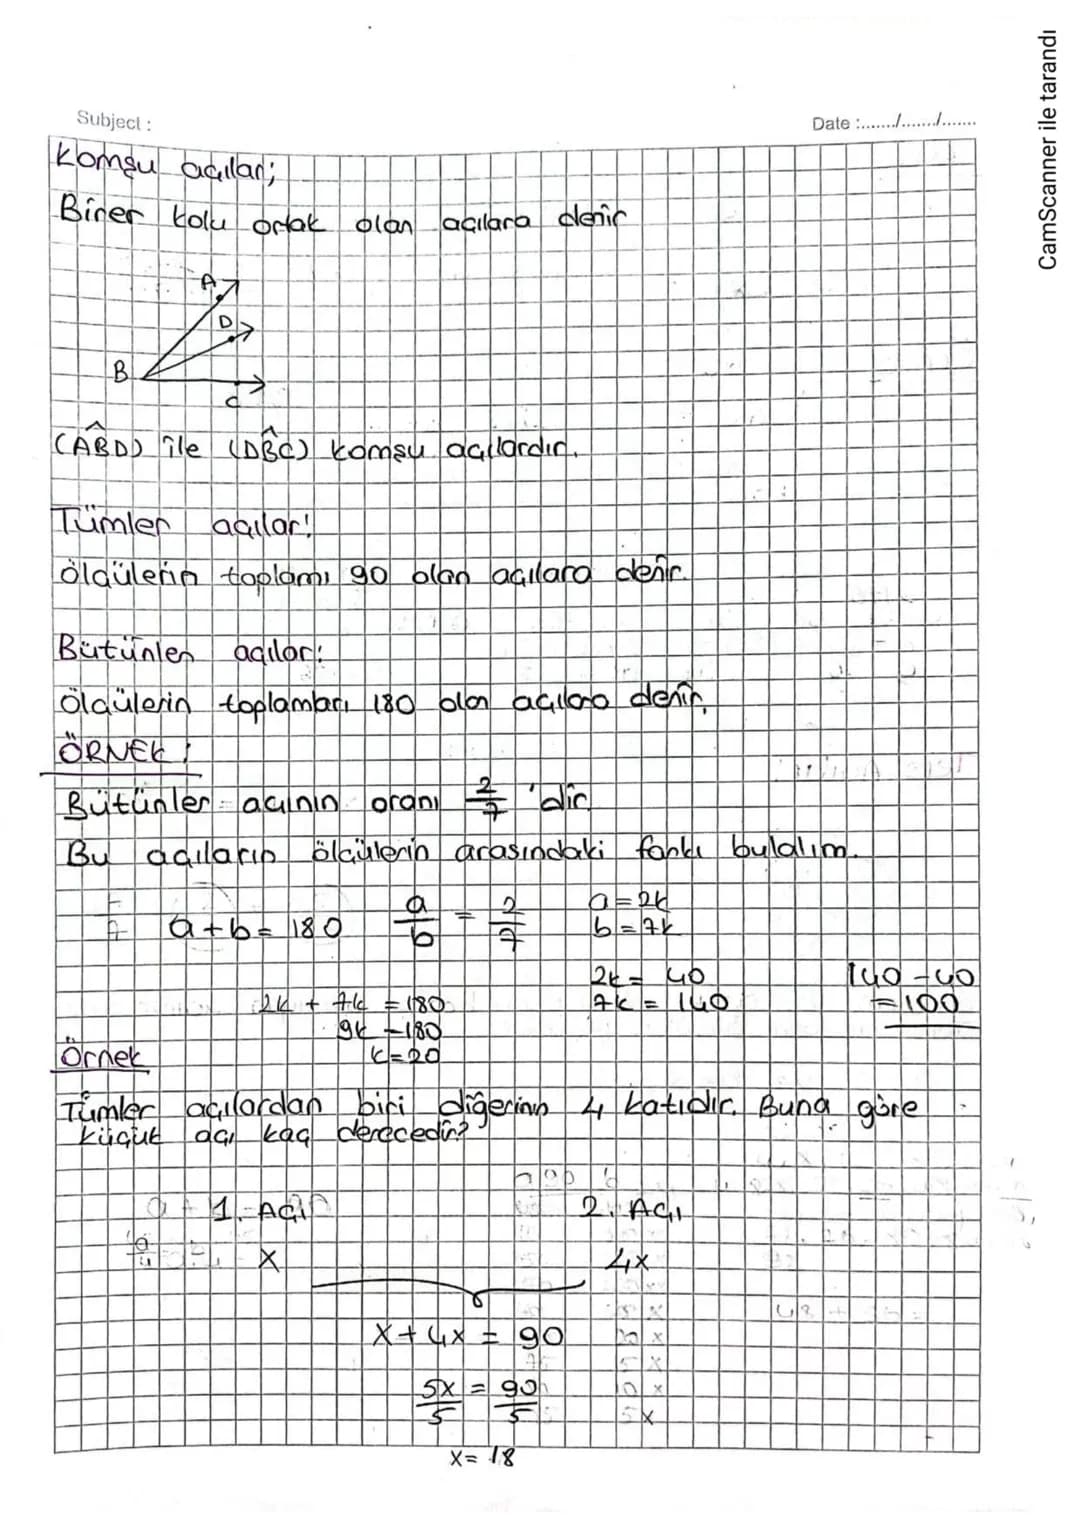 Subject :
Date :......./......./.......
CamScanner ile tarandı
Komşu açılar;
Birer kolu ortak olan açılara denir
A
D
B
C
(AB̂D) ile (DB̂C) komşu açılardır.
Tümler açılar!
Ölçülerin toplamı 90 olan açılara denir.
Bütünler açılar:
Ölçülerin toplamları 180 olan açılara denir.
ÖRNEK :
Bütünler açının oranı 2/7 'dir.
Bu açıların ölçülerin arasındaki farkı bulalım.
a+b= 180 a/b = 2/7 a=2k
b=7k
2k= 40 140-40
2k + 7k =180 7k = 140 =100
9k =180
Örnek k=20
Tümler açılardan biri diğerinin 4 katıdır. Buna göre
küçük açı kaç derecedir?
1. Açı 2. Açı
x 4x
x+4x = 90
5x/5 = 90/5
x= 18